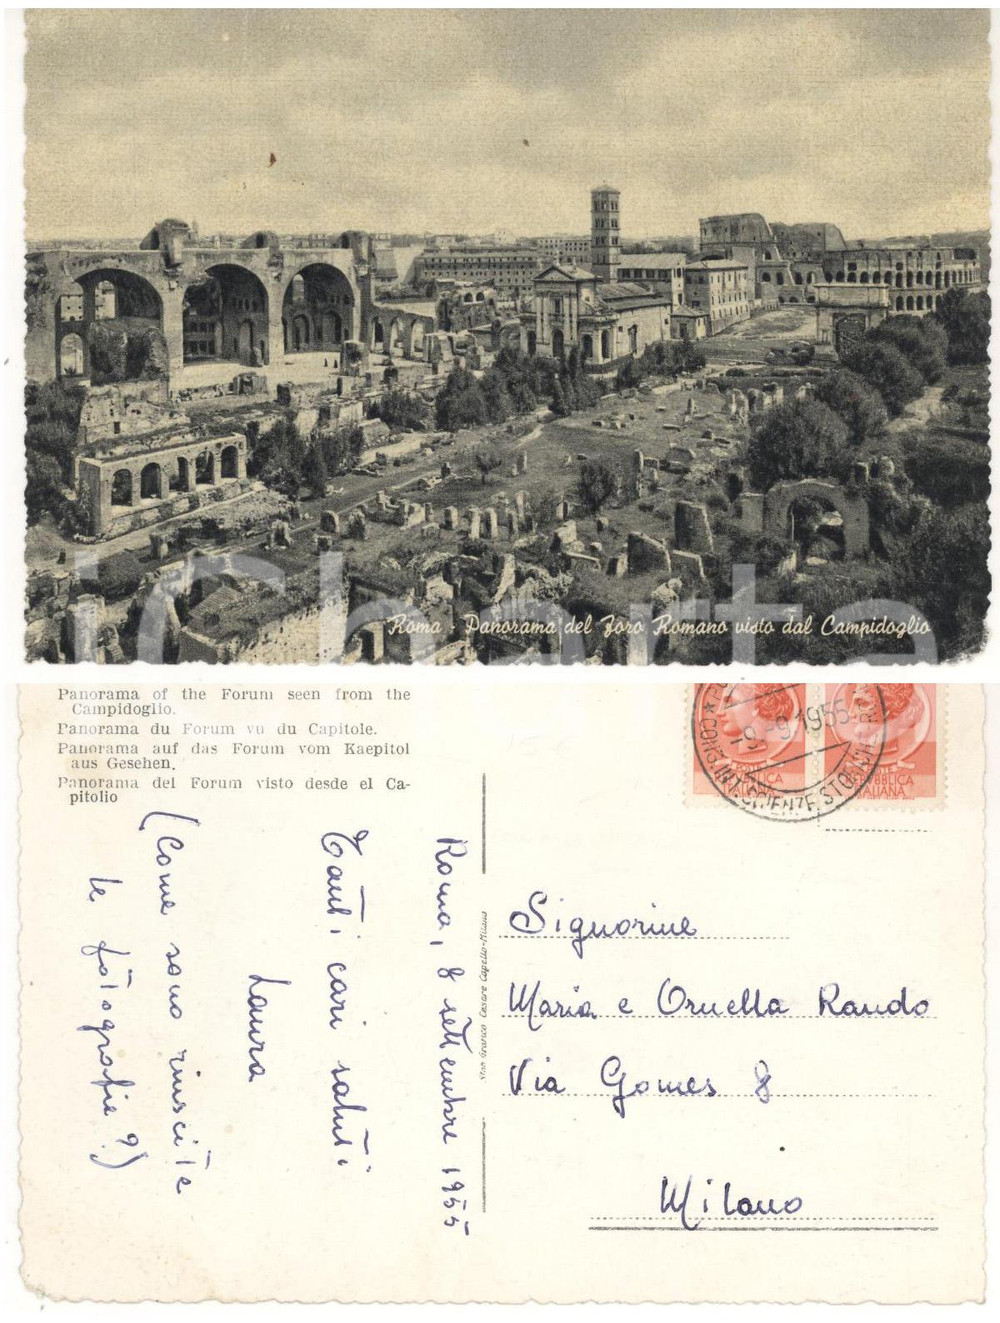 Roma - Panorama del Foro Romano visto dal Campidoglio
iCharta
Panorama of the Forum seen from the
Campidoglio.
Panorama du Forum vu du Capitole.
Panorama auf das Forum vom Kaepitol
aus Gesehen.
Panorama del Forum visto desde el Ca-
pitolio
Roma, 8 settembre 1955
Tanti cari saluti
Laura
(Come sono riuscite
le fotografie?)
Cesare Capello-Milano
-9.-9.1955
REPUBBLICA
ITALIANA
Signorine
Maria e Ornella Rando
Via Gomes 8
Milano